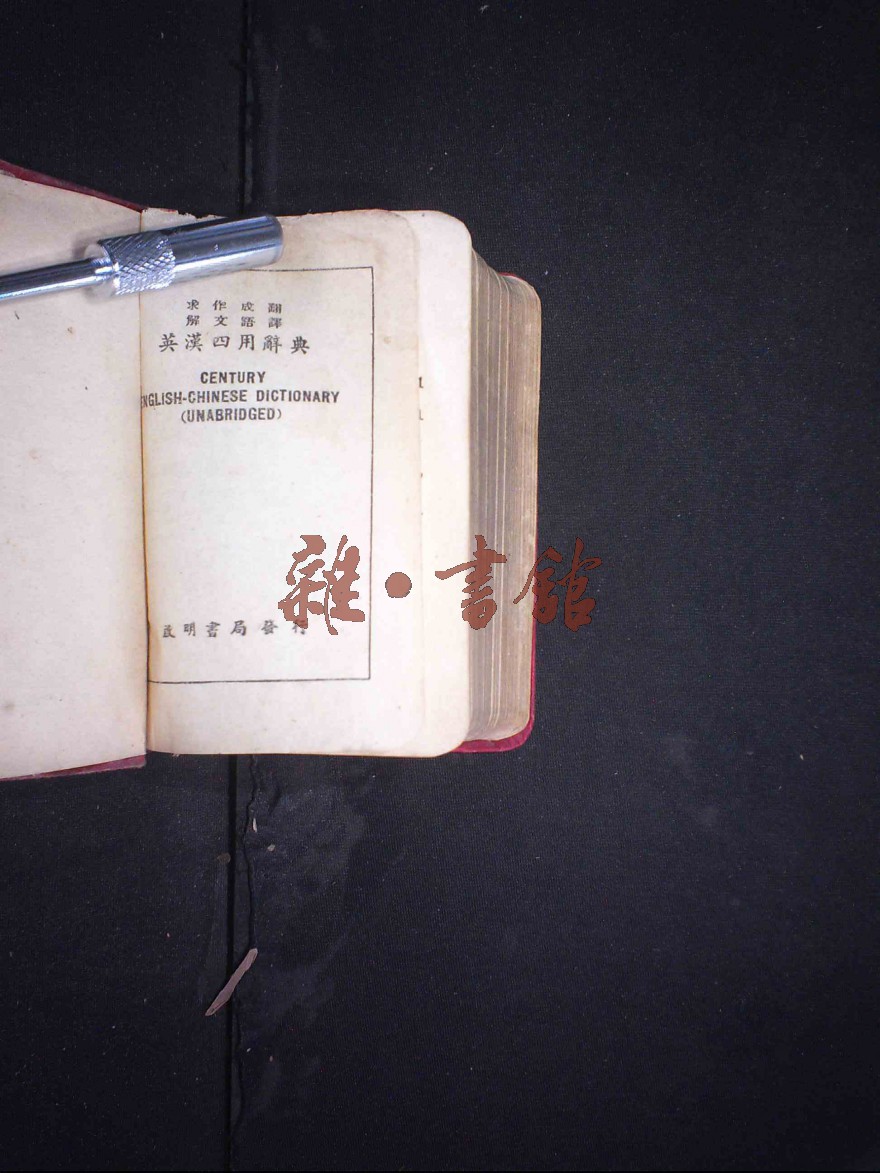 求作成翻
解文語譯
英漢四用辭典
CENTURY
ENGLISH-CHINESE DICTIONARY
(UNABRIDGED)
啟明書局發行
雜·書館